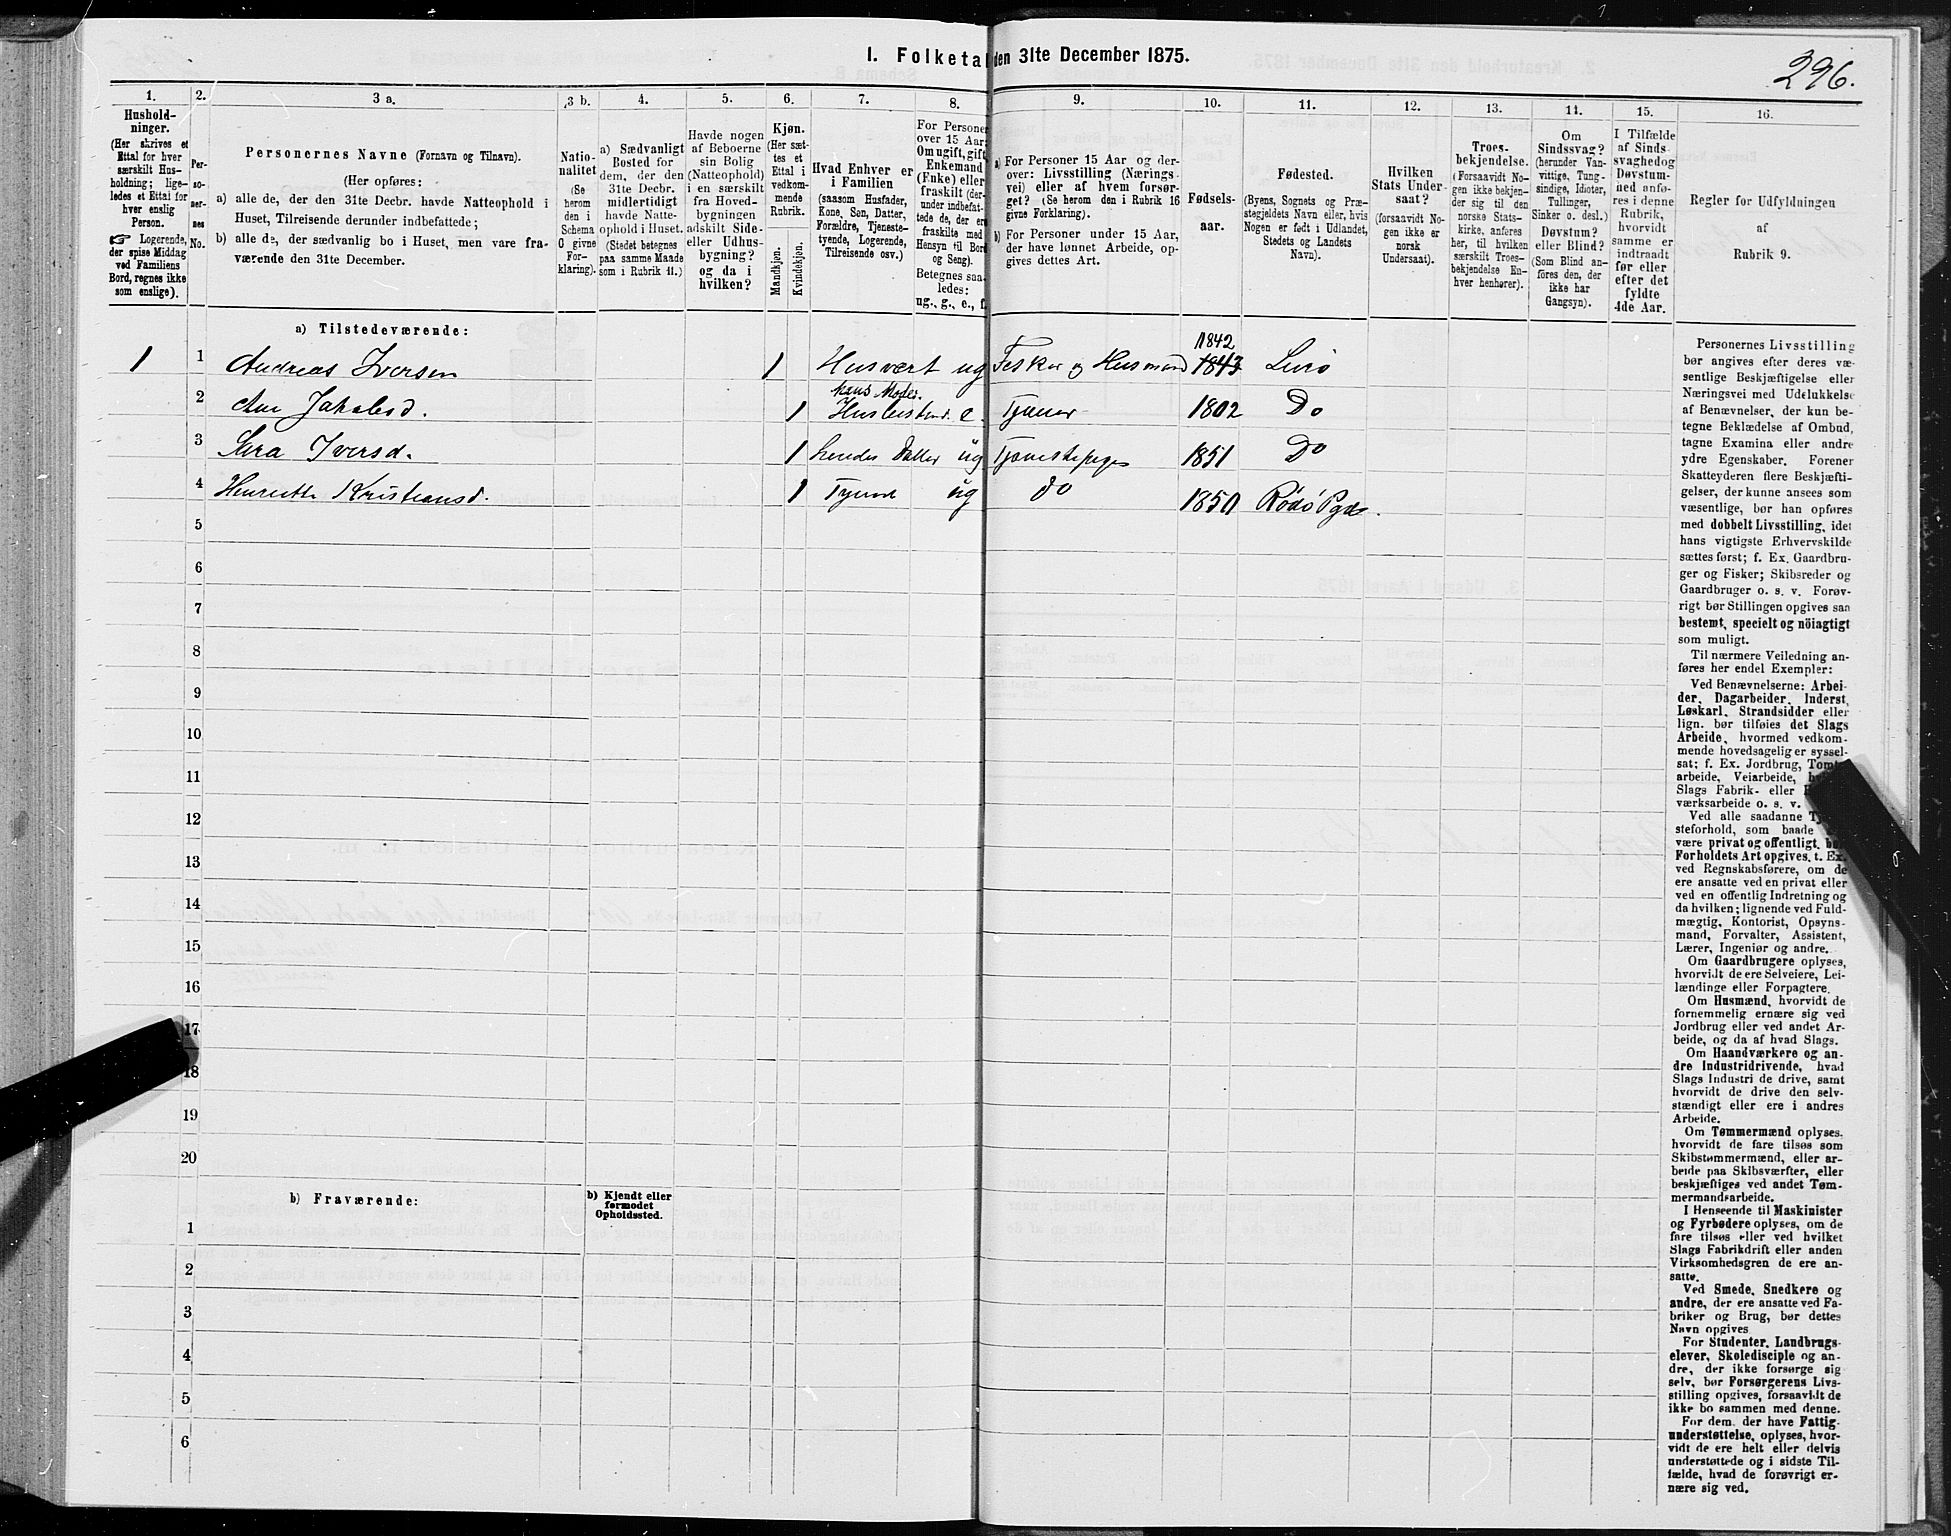 296.
I. Folketal den 31te December 1875.
1. 2. 3 a. 3 b. 4. 5. 6. 7. 8. 9. 10. 11. 12. 13. 14. 15. 16.
Hushold-
ninger.
(Her skrives et
Ettal for hver
særskilt Hus-
holdning; lige-
ledes et Ettal for
hver enslig
Person.
☞ Logerende,
der spise Middag
ved Familiens
Bord, regnes ikke
som enslige).
Per-
so-
ner-
nes
No.
Personernes Navne (Fornavn og Tilnavn).
(Her opføres:
a) alle de, der den 31te Decbr. havde Natteophold i
Huset, Tilreisende derunder indbefattede;
b) alle de, der sædvanlig bo i Huset, men vare fra-
værende den 31te December.
Natio-
nalitet
(Se
herom
den i
Schema
C givne
For-
klaring).
a) Sædvanligt
Bosted for
dem, der den
31te Decbr.
midlertidigt
havde Natte-
ophold i Huset.
(Stedet betegnes
paa samme Maade
som i Rubrik 11.)
Havde nogen
af Beboerne
sin Bolig
(Natteophold)
i en særskilt
fra Hoved-
bygningen
adskilt Side-
eller Udhus-
bygning?
og da i
hvilken?
Kjøn.
(Her sæt-
tes et
Ettal i
vedkom-
mende
Rubrik.
Mandkjøn.
Kvindekjøn.
Hvad Enhver er
i Familien
(saasom Husfader,
Kone, Søn, Datter,
Forældre, Tjeneste-
tyende, Logerende,
Tilreisende osv.)
For Personer
over 15 Aar:
Om ugift, gift,
Enkemand
(Enke) eller
fraskilt (der-
under indbefat-
tede de, der ere
fraskilte med
Hensyn til Bord
og Seng).
Betegnes saa-
ledes:
ug., g., e., f.
a) For Personer 15 Aar og der-
over: Livsstilling (Nærings-
vei) eller af hvem forsør-
get? (Se herom den i Rubrik 16
givne Forklaring).
b) For Personer under 15 Aar,
der have lønnet Arbeide, op-
gives dettes Art.
Fødsels-
aar.
Fødested.
(Byens, Sognets og Præ-
stegjeldets Navn eller, hvis
Nogen er født i Udlandet,
Stedets og Landets
Navn).
Hvilken
Stats Under-
saat?
(forsaavidt No-
gen ikke er
norsk
Undersaat).
Troes-
bekjendelse.
(Forsaavidt No-
gen ikke bekjen-
der sig til den
norske Stats-
kirke, anføres
her, til hvilken
særskilt Troes-
bekjendelse En-
hver henhører).
Om
Sindssvag?
(herunder Van-
vittige, Tung-
sindige, Idioter,
Tullinger,
Sinker o. desl.)
Døvstum?
eller Blind?
(Som Blind an-
føres den, der
ikke har
Gangsyn).
I Tilfælde
af Sinds-
svaghed og
Døvstum-
hed anfø-
res i denne
Rubrik,
hvorvidt
samme er
indtraadt
før eller
efter det
fyldte
4de Aar.
Regler for Udfyldningen
af
Rubrik 9.
a) Tilstedeværende:
1842
1 1 Andreas Iversen 1 Husvært ug Fisker og Husmand 1843 Lurø
hans Moder.
2 Ane Jakobsd. 1 e. 1802 Do
3 Sara Iversd. 1 hendes Datter ug Tjenestepige 1851 Do
4 Henriette Kristiansd. 1 Tyende ug do 1850 Rødø Pgd.
5
6
7
8
9
10
11
12
13
14
15
16
17
18
19
20
b) Fraværende:
b) Kjendt eller
formodet
Opholdssted.
1
2
3
4
5
6
Personernes Livsstilling
bør angives efter deres væ-
sentlige Beskjæftigelse eller
Næringsvei med Udelukkelse
af Benævnelser, der kun be-
tegne Beklædelse af Ombud,
tagne Examina eller andre
ydre Egenskaber. Forener
Skatteyderen flere Beskjæfti-
gelser, der kunne ansees som
væsentlige, bør han opføres
med dobbelt Livsstilling, idet
hans vigtigste Erhvervskilde
sættes først; f. Ex. Gaardbru-
ger og Fisker; Skibsreder og
Gaardbruger o. s. v. Forøv-
rigt bør Stillingen opgives saa
bestemt, specielt og nöiagtigt
som muligt.
Til nærmere Veiledning an-
føres her endel Exempler:
Ved Benævnelserne: Arbei-
der, Dagarbeider, Inderst,
Løskarl, Strandsidder eller
lign. bør tilføies det Slags
Arbeide, hvormed vedkom-
mende hovedsagelig er syssel-
sat; f. Ex. Jordbrug,
arbeide, Veiarbeide,
Slags Fabrik- eller
værksarbeide o. s. v.
Ved alle saadanne
steforhold, som baade
være privat og offentligt,
Forholdets Art opgives, t. Ex.
ved Regnskabsførere, om de
ere ansatte ved en privat eller
ved en offentlig Indretning og
da hvilken; lignende ved Fuld-
mægtig, Kontorist, Opsyns-
mand, Forvalter, Assistent,
Lærer, Ingeniør og andre.
Om Gaardbrugere oplyses,
hvorvidt de ere Selveiere, Lei-
lændinge eller Forpagtere.
Om Husmænd, hvorvidt de
fornemmelig ernære sig ved
Jordbrug eller ved andet Ar-
beide, og da af hvad Slags.
Om Haandværkere og an-
dre Industridrivende, hvad
Slags Industri de drive, samt
hvorvidt de drive den selv-
stændigt eller ere i andres
Arbeide.
Om Tømmermænd oplyses,
hvorvidt de fare tilsøs som
Skibstømmermænd, eller ar-
beide paa Skibsværfter, eller
beskjæftiges ved andet Tøm-
mermandsarbeide.
I Henseende til Maskinister
og Fyrbødere oplyses, om de
fare tilsøs eller ved hvilket
Slags Fabrikdrift eller anden
Virksomhedsgren de ere an-
satte.
Ved Smede, Snedkere og
andre, der ere ansatte ved Fa-
briker og Brug, bør dettes
Navn opgives
For Studenter, Landbrugs-
elever, Skoledisciple og an-
dre, der ikke forsørge sig
selv, bør Forsørgerens Livs-
stilling opgives, forsaavidt de
ikke bo sammen med denne.
For dem, der have Fattig-
understøttelse, oplyses, hvor-
vidt de ere helt eller delvis
understøttede og i sidste Til-
fælde, hvad de forøvrigt er-
nære sig ved.